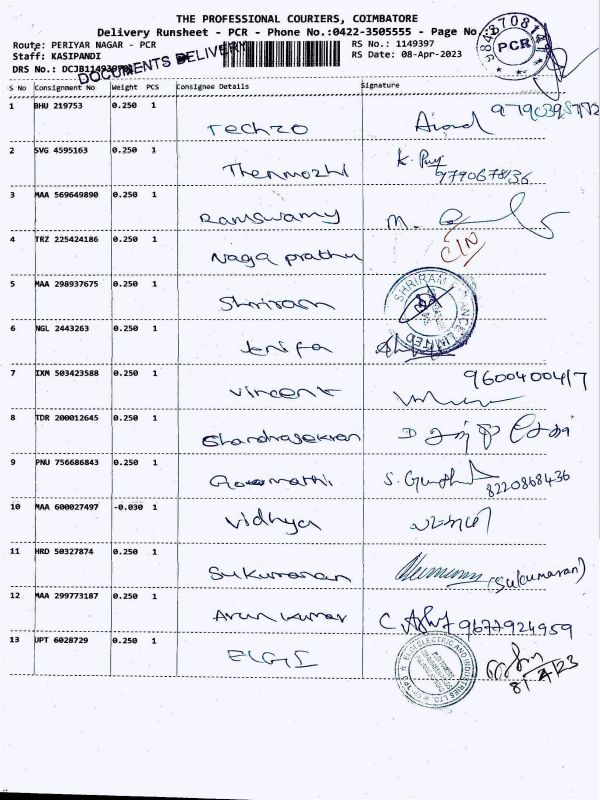 THE PROFESSIONAL COURIERS, COIMBATORE
Delivery Runsheet - PCR - Phone No.:0422-3505555 - Page No
Route: PERIYAR NAGAR - PCR
RS No.: 1149397
Staff: KASIPANDI
RS Date: 08-Apr-2023
DRS No.:
DOCUMENTS DELIVERY
PCR
S No Consignment No Weight PCS Consignee Details Signature
1 BHU 219753 0.250 1
Techzo
2 SVG 4595163 0.250 1
Thenmozhi
3 MAA 569649890 0.250 1
Ramswamy M.
4 TRZ 225424186 0.250 1
Naga prathu
5 MAA 298937675 0.250 1
Shriram
6 NGL 2443263 0.250 1
Jenifa
7 IXM 503423588 0.250 1
Vincent
8 TDR 200012645 0.250 1
Chandrasekran D
9 PNU 756686843 0.250 1
Goomathi S. 8220868436
10 MAA 600027497 -0.030 1
Vidhya
11 HRD 50327874 0.250 1
Sukumaran (Sukumaran)
12 MAA 299773187 0.250 1
Arun kumar C. 9677924959
13 UPT 6028729 0.250 1
ELGI
8/4/23